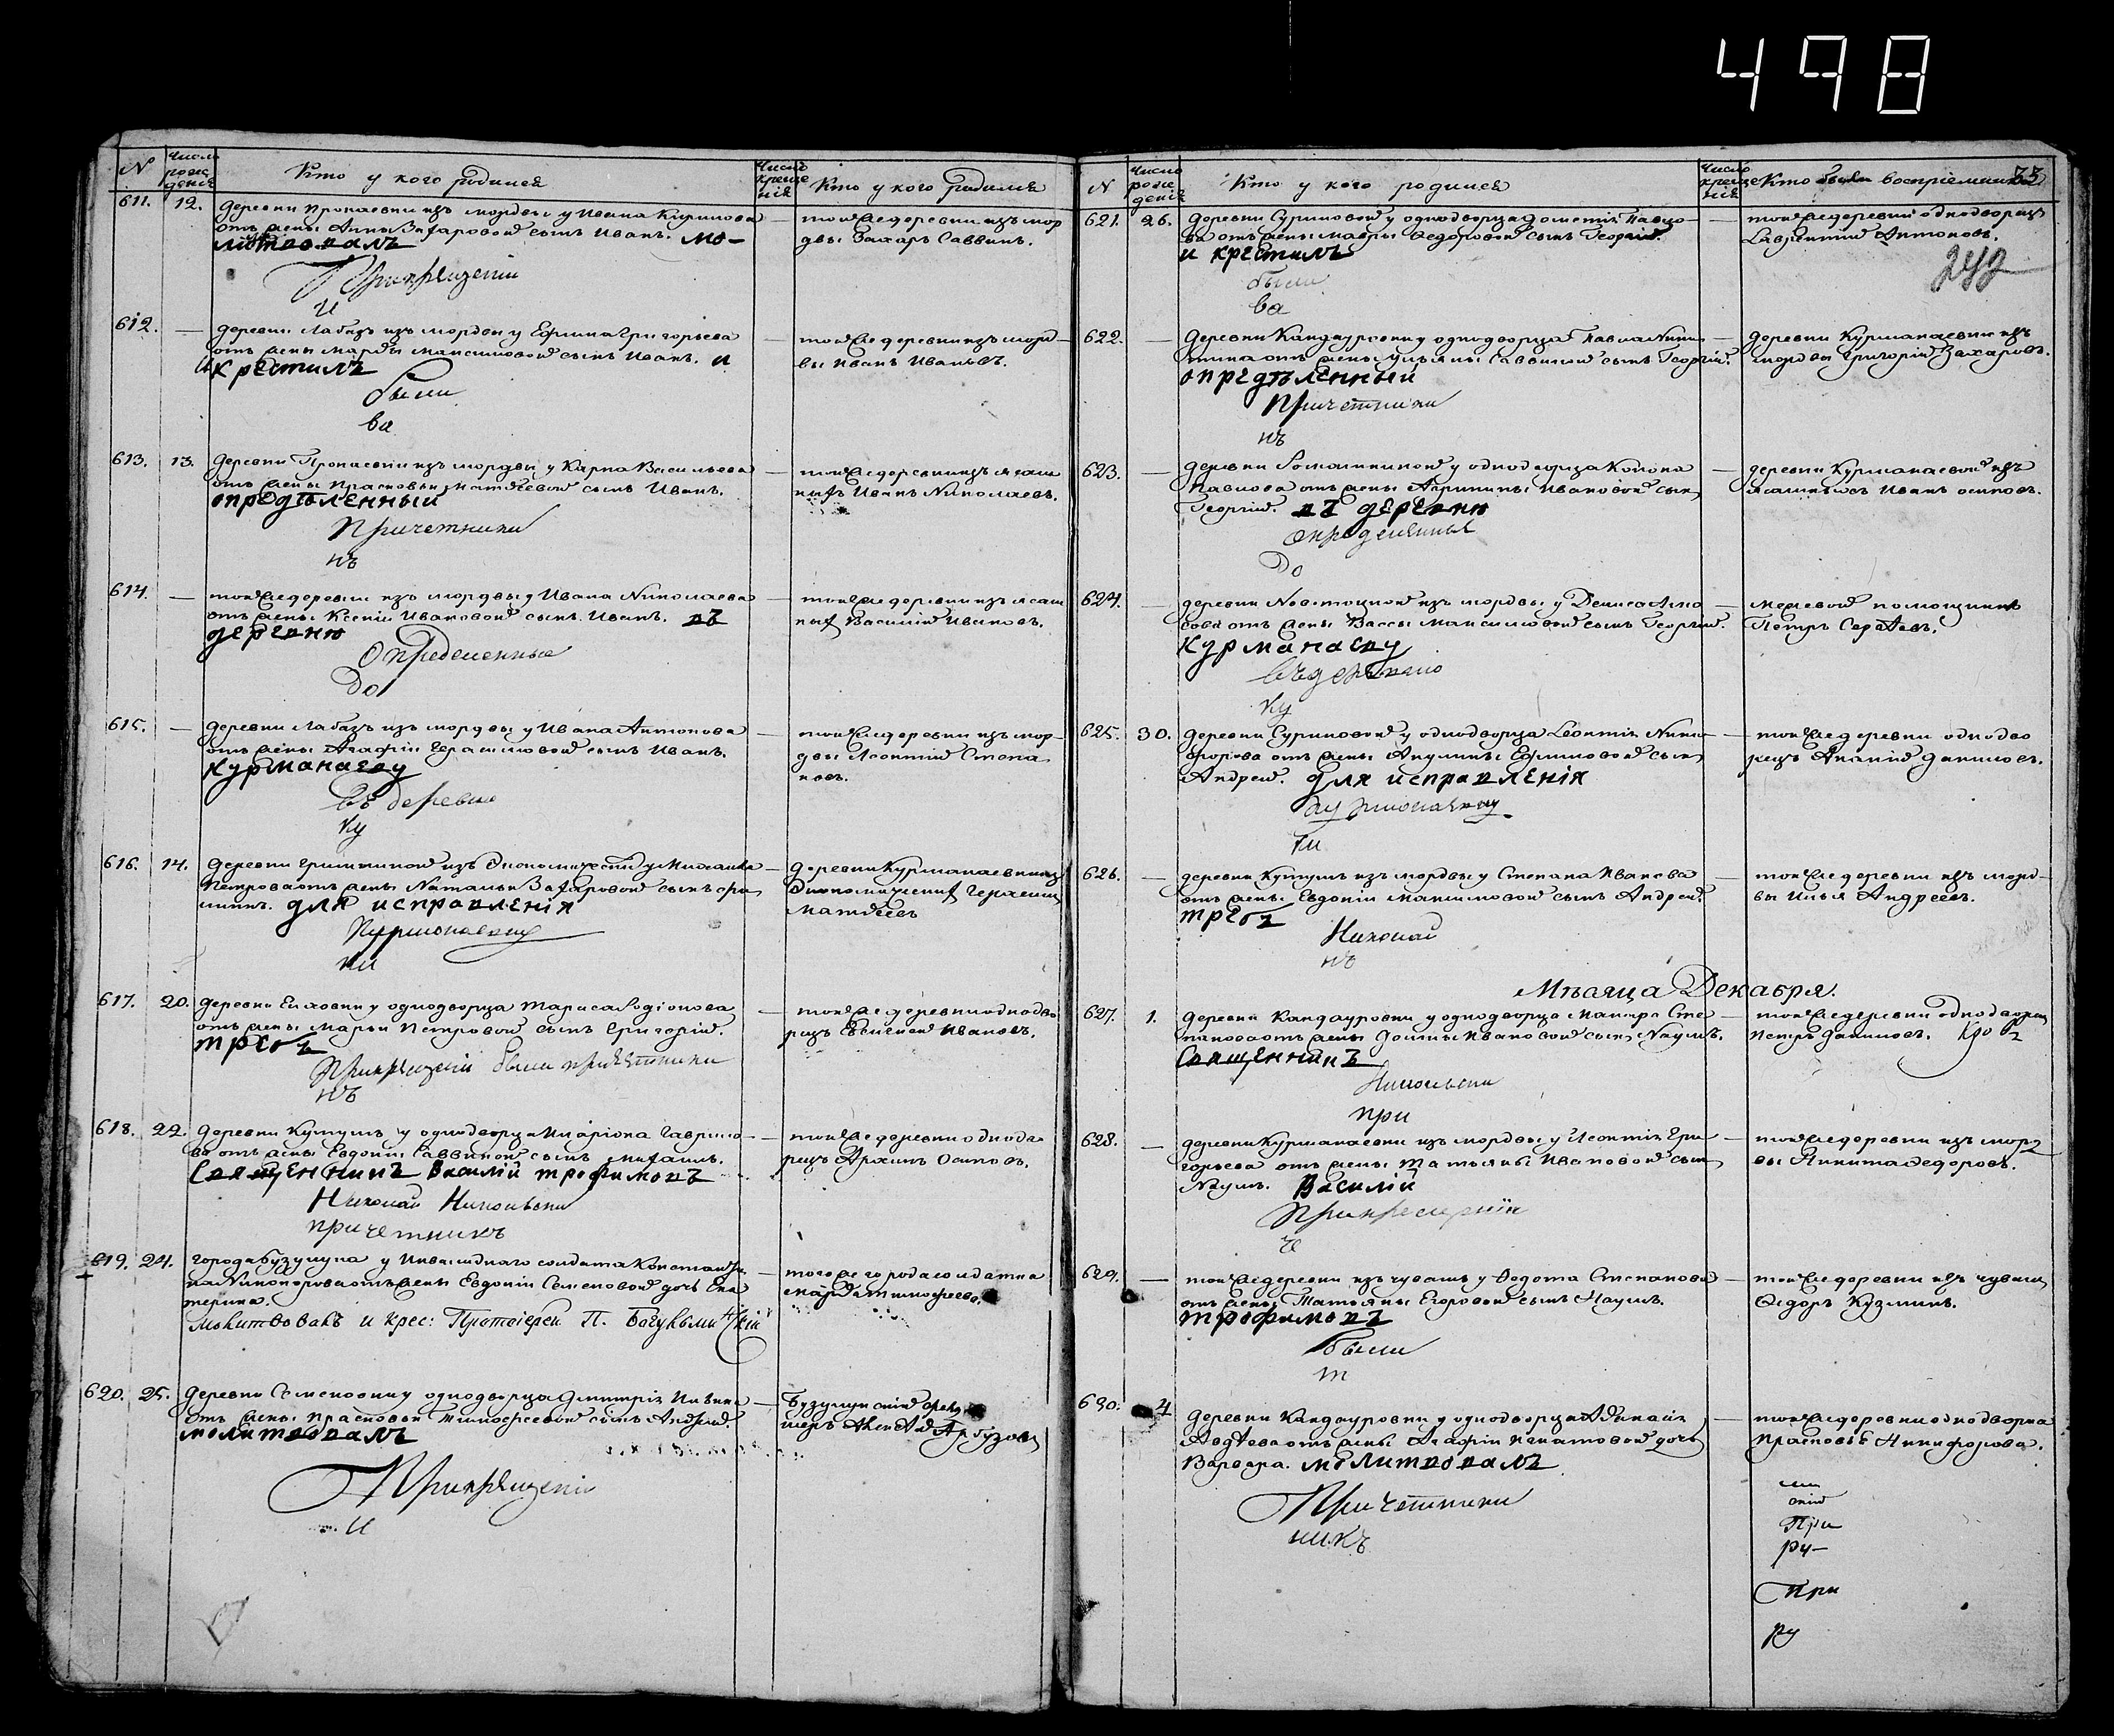 498
N
Число рождения
Кто у кого родился
Число крещения
Кто у кого родился
611. 12. деревни Пронаевки изъ мордвы у Ивана Кирилова
отъ жены Анны Захаровой сынъ Иванъ. мо-
литвовалъ
При крещеніи
и
той же деревни изъ мор
двы Захаръ Саввинъ.
612. — деревни Лабазъ изъ мордвы у Ефима Григорьева
отъ жены Марфы Максимовой сынъ Иванъ. и
крестилъ
были
ва
той же деревни изъ морд-
вы Иванъ Ивановъ.
613. 13. деревни Пронаевки изъ мордвы у Карпа Васильева
отъ жены Прасковьи Матвѣевой сынъ Иванъ.
опредѣленный
Причетники
нъ
той же деревни изъ ясаш
ныхъ Иванъ Николаевъ.
614. — той же деревни изъ мордвы у Ивана Николаева
отъ жены Ксеніи Ивановой сынъ Иванъ. въ
деревню
Определенные
До
той же деревни изъ ясаш
ныхъ Василій Ивановъ.
615. — деревни Лабазъ изъ мордвы у Ивана Антонова
отъ жены Агафіи Герасимовой сынъ Иванъ.
Курманаеву
въ деревню
ку
той же деревни изъ мор-
двы Леонтій Степа
новъ.
616. 14. деревни Гришкиной изъ Экономическихъ у Михаила
Петрова отъ жены Натальи Захаровой сынъ Фи
липпъ. для исправленія
Курманаевку
ки
деревни Курманаевки изъ
Экономическихъ Герасимъ
Матвѣевъ
617. 20. деревни Елховки у однодворца Тараса Родіонова
отъ жены Марьи Петровой сынъ Григорій.
требъ
При крещеніи были причетники
нъ
той же деревни однодво
рецъ Евсигней Ивановъ.
618. 22. деревни Кутушъ у однодворца Иларіона Гаврило-
ва отъ жены Евдокіи Саввиной сынъ Михаилъ.
Священникъ Василій Трофимовъ
Николай Никольскій
причетникъ
той же деревни однодво
рецъ Архипъ Осиповъ.
619. 24. города Бузулука у Инвалиднаго солдата Константи
на Никифорова отъ жены Евдокіи Семеновой дочь Ека
терина.
Молитвовалъ и крес: Протоіерей П.
того же города солдатка
Марфа Тимофеева.
620. 25. деревни Семеновки у однодворца Дмитрія Ильина
отъ жены Прасковьи Тимофеевой сынъ Андрей
молитвовалъ
При крещеніи
и
Бузулукскій
Алексѣй Арбузовъ
N
Число рождения
Кто у кого родился
Число крещенія
Кто были воспріемники
33
621. 26. деревни Суриковой у однодворца Дометія Павло-
ва отъ жены Мавры Федоровой сынъ Георгій.
и крестилъ
были
ва
той же деревни однодворецъ
Лаврентій Антоновъ.
242
622. — деревни Кандауровки у однодворца Павла Ники
тина отъ жены Ульяны Саввиной сынъ Георгій.
опредѣленный
Причетники
нъ
деревни Курманаевки изъ
мордвы Григорій Захаровъ.
623. — деревни Ромашкиной у однодворца Конона
Павлова отъ жены Агрипины Ивановой сынъ
Георгій. въ деревню
определенные
До
деревни Курманаевой изъ
ясашныхъ Иванъ Осиповъ.
624. — деревни изъ мордвы у Дениса
отъ жены Вассы Максимовой сынъ Георгій.
Курманаеву
въ деревню
ку
межевой помощникъ
Петръ Сергѣевъ.
625. 30. деревни Суриковой у однодворца Леонтія Ники-
форова отъ жены Акулины Ефимовой сынъ
Андрей. для исправленія
Курманаевку
ки
той же деревни однодво
рецъ Ананій Даниловъ.
626. — деревни Кутушъ изъ мордвы у Степана Иванова
отъ жены Евдокіи Максимовой сынъ Андрей.
требъ
Николай
нъ
той же деревни изъ морд-
вы Илья Андреевъ.
Мѣсяца Декабря.
627. 1. деревни Кандауровки у однодворца Мактра Сте-
панова отъ жены Домны Ивановой сынъ Наумъ.
Священникъ
Никольскій
при
той же деревни однодворецъ
Петръ Даниловъ.
628. — деревни Курманаевки изъ мордвы у Леонтія Гри-
горьева отъ жены Татьяны Ивановой сынъ
Наумъ. Василій
При крещеніи
че
той же деревни изъ морд
вы Никита Федоровъ.
629. — той же деревни изъ чувашъ у Федота Степанова
отъ жены Татьяны Егоровой сынъ Наумъ.
Трофимовъ
были
т
той же деревни изъ чувашъ
Федоръ Кузминъ.
630. 4 деревни Кандауровки у однодворца Афанасія
Авдѣева отъ жены Агафіи Игнатовой дочь
Варвара. молитвовалъ
Причетники
никъ
той же деревни однодворка
Прасковья Никифорова.
скій
При
ру-
При
ру